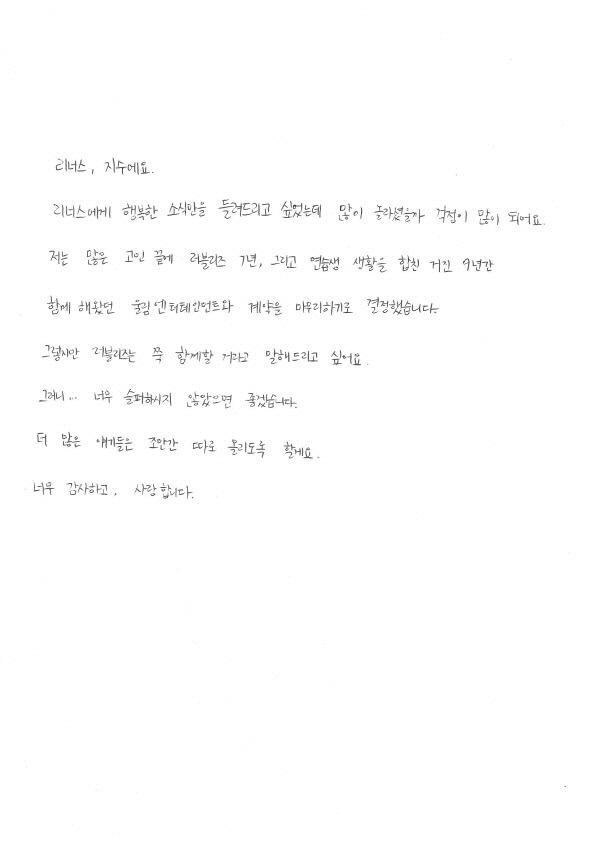 리너스, 지수예요.
리너스에게 행복한 소식만을 들려드리고 싶었는데 많이 놀라셨을까 걱정이 많이 되어요.
저는 많은 고민 끝에 러블리즈 7년, 그리고 연습생 생활을 합친 거진 9년간
함께 해왔던 울림엔터테인먼트와 계약을 마무리하기로 결정했습니다.
그렇지만 러블리즈는 쭉 함께할 거라고 말해드리고 싶어요.
그러니... 너무 슬퍼하시지 않았으면 좋겠습니다.
더 많은 얘기들은 조만간 따로 올리도록 할게요.
너무 감사하고, 사랑합니다.